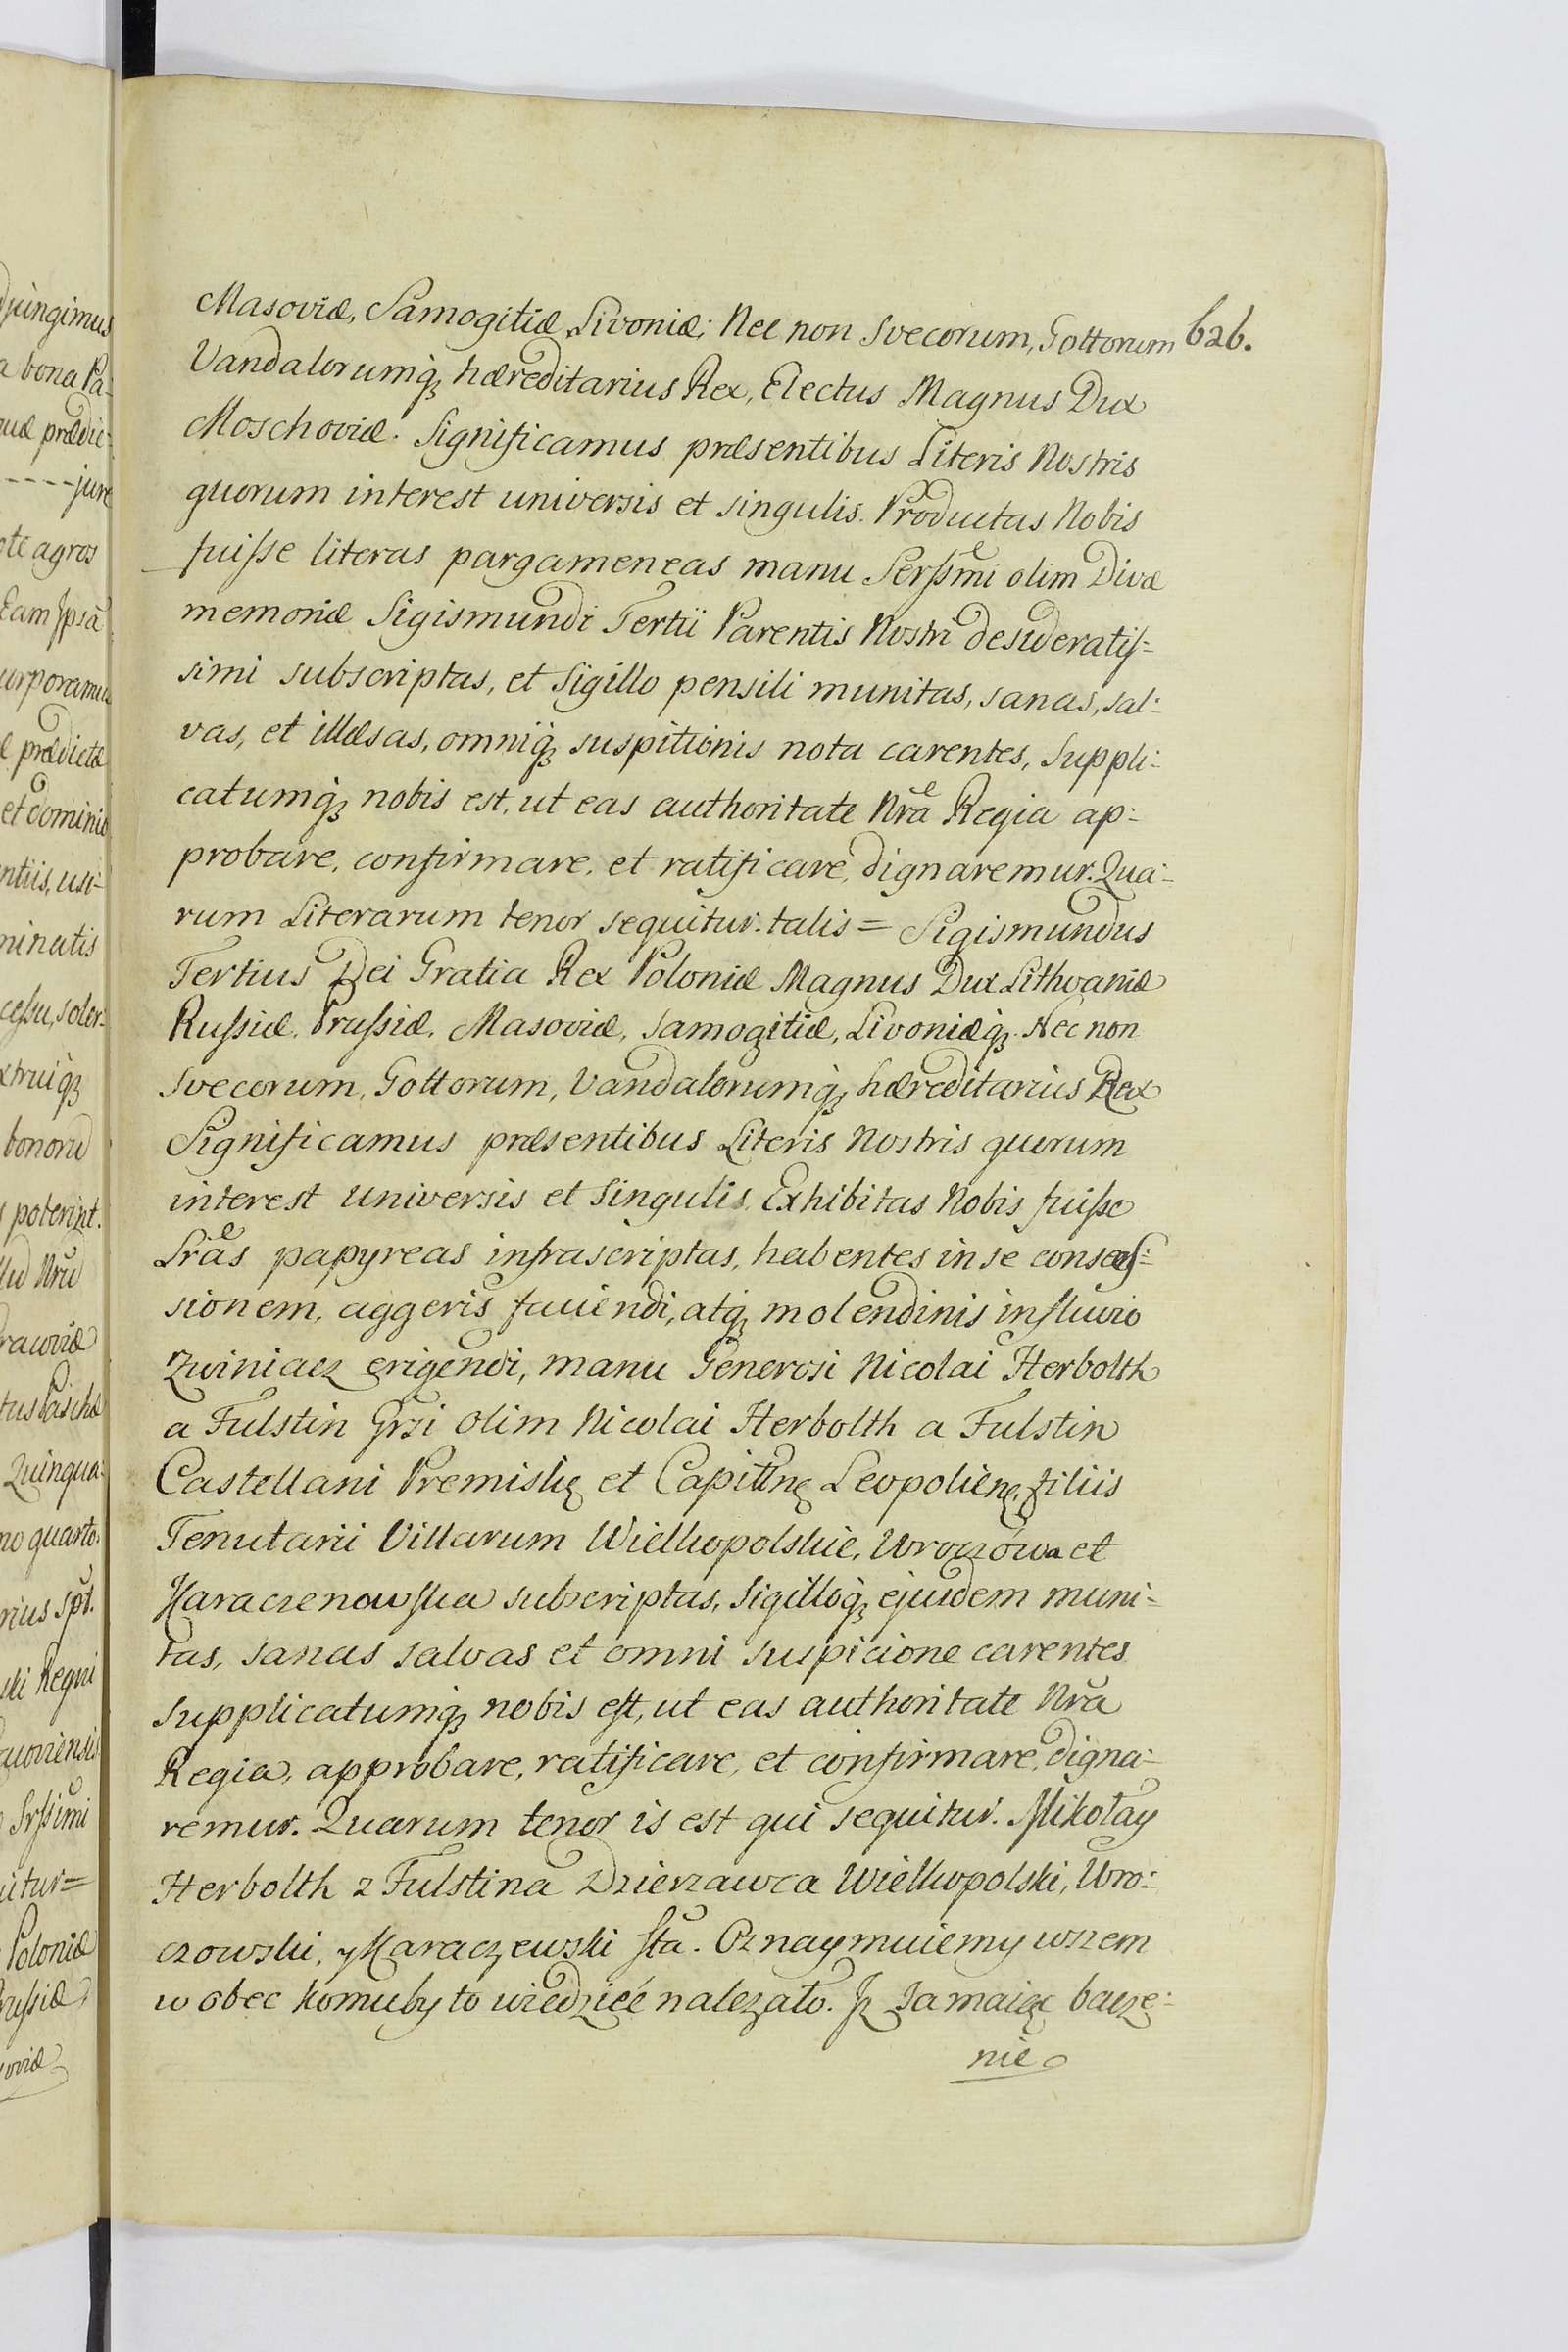 626.
Masoviæ, Samogitiæ, Livoniæ; Nec non Svecorum, Gottorum
Vandalorumqꝫ hæreditarius Rex, Electus Magnus Dux
Moschoviæ. Significamus præsentibus Literis Nostris
quorum interest universis et singulis. Productas Nobis
fuisse literas pargameneas manu Serssmi olim Divæ
memoriæ Sigismundi Tertii Parentis Nostri desideratis-
simi subscriptas, et Sigillo pensili munitas, sanas, sal-
vas, et illæsas, omniqꝫ suspitionis nota carentes, Suppli-
catumqꝫ nobis est, ut eas authoritate Nra Regia ap-
probare, confirmare, et ratificare, dignaremur. Qua-
rum Literarum tenor sequitur. talis = Sigismundus
Tertius Dei Gratia Rex Poloniæ Magnus Dux Lithvaniæ
Russiæ, Prussiæ, Masoviæ, Samogitiæ, Livoniæqꝫ. Nec non
Svecorum, Gottorum, Vandalorumqꝫ hæreditarius Rex
Significamus præsentibus Literis Nostris quorum
interest universis et Singulis, Exhibitas Nobis fuisse
Lras papyreas infrascriptas, habentes in se conses-
sionem, aggeris faciendi, atqꝫ molendinis in fluvio
Zwiniacz erigendi, manu Generosi Nicolai Herbolth
a Fulstin Grsi olim Nicolai Herbolth a Fulstin
Castellani Premislię et Capitlnę Leopolienę, filiis
Tenutarii Villarum Wielkopolskie, Wroczówa et
subscriptas, Sigilloqꝫ ejusdem muni-
tas, sanas salvas et omni suspicione carentes
supplicatumqꝫ nobis est, ut eas authoritate Nra
Regia, approbare, ratificare, et confirmare, digna-
remur. Quarum tenor is est qui sequitur. Mikołay
Herbolth z Fulstina Dzierzawca Wielkopolski, Wro-
czowski, y Karaczewski Sta. Oznaymuiemy wszem
w obec komuby to wiedzieć nalezało. Jz Ja maiąc bacze-
nie